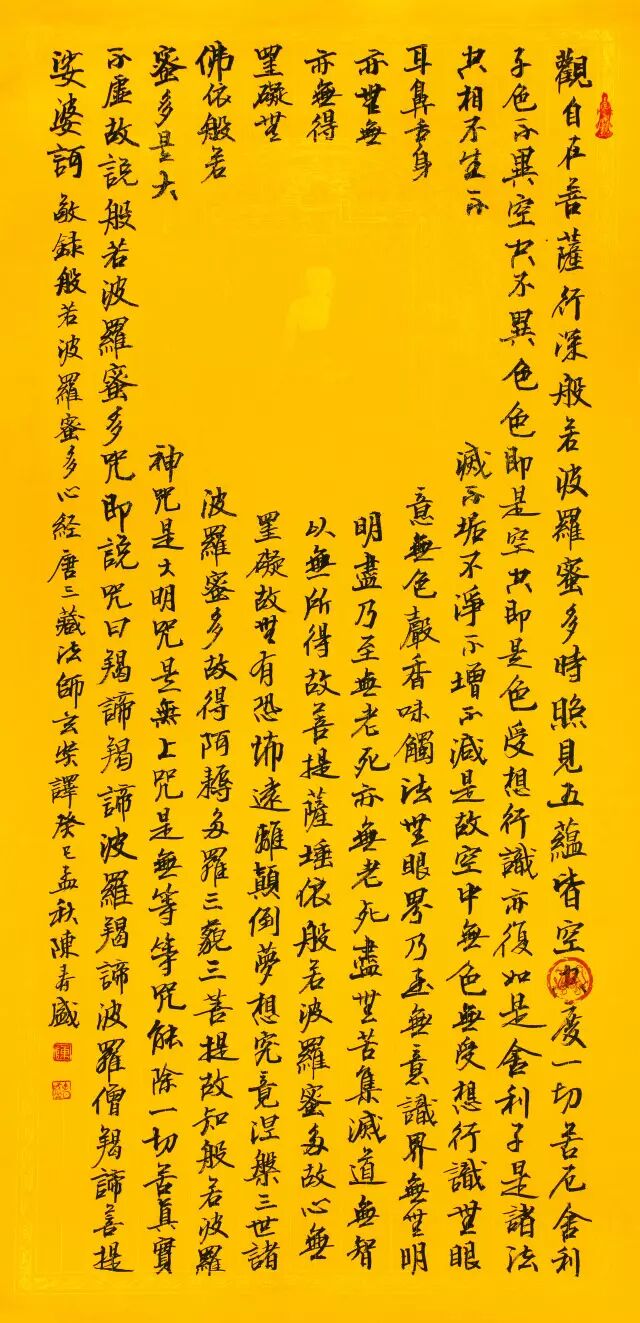 觀自在菩薩行深般若波羅蜜多時照見五蘊皆空度一切苦厄舍利
子色不異空空不異色色即是空空即是色受想行識亦復如是舍利子是諸法
空相不生不滅不垢不淨不增不減是故空中無色無受想行識無眼
耳鼻舌身意無色聲香味觸法無眼界乃至無意識界無無明
亦無無明盡乃至無老死亦無老死盡無苦集滅道無智
亦無得以無所得故菩提薩埵依般若波羅蜜多故心無
罣礙無罣礙故無有恐怖遠離顛倒夢想究竟涅槃三世諸
佛依般若波羅蜜多故得阿耨多羅三藐三菩提故知般若波羅
蜜多是大神咒是大明咒是無上咒是無等等咒能除一切苦真實
不虛故說般若波羅蜜多咒即說咒曰羯諦羯諦波羅羯諦波羅僧羯諦菩提
娑婆訶 敬録般若波羅蜜多心經唐三藏法師玄奘譯癸巳孟秋陳盛